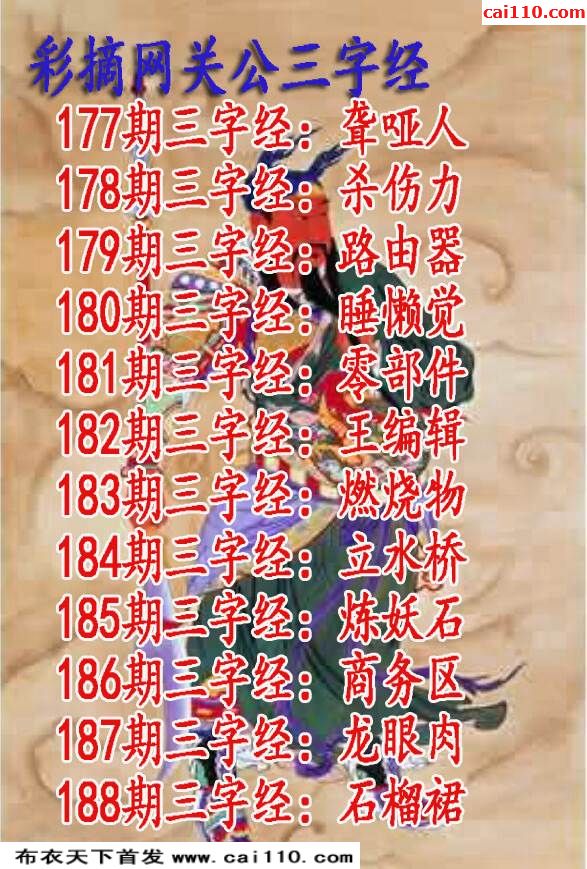 cai110.com
彩摘网关公三字经
177期三字经：聋哑人
178期三字经：杀伤力
179期三字经：路由器
180期三字经：睡懒觉
181期三字经：零部件
182期三字经：王编辑
183期三字经：燃烧物
184期三字经：立水桥
185期三字经：炼妖石
186期三字经：商务区
187期三字经：龙眼肉
188期三字经：石榴裙
布衣天下首发 www.cai110.com